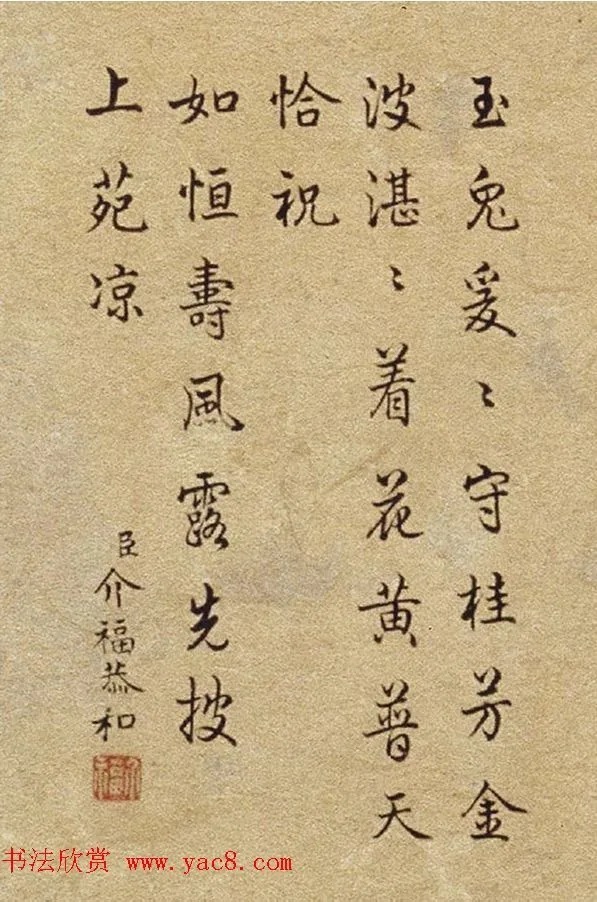 玉兔爰〻守桂芳金
波湛〻着花黄普天
恰祝
如恒壽風露先披
上苑凉
臣介福恭和
书法欣赏 www.yac8.com